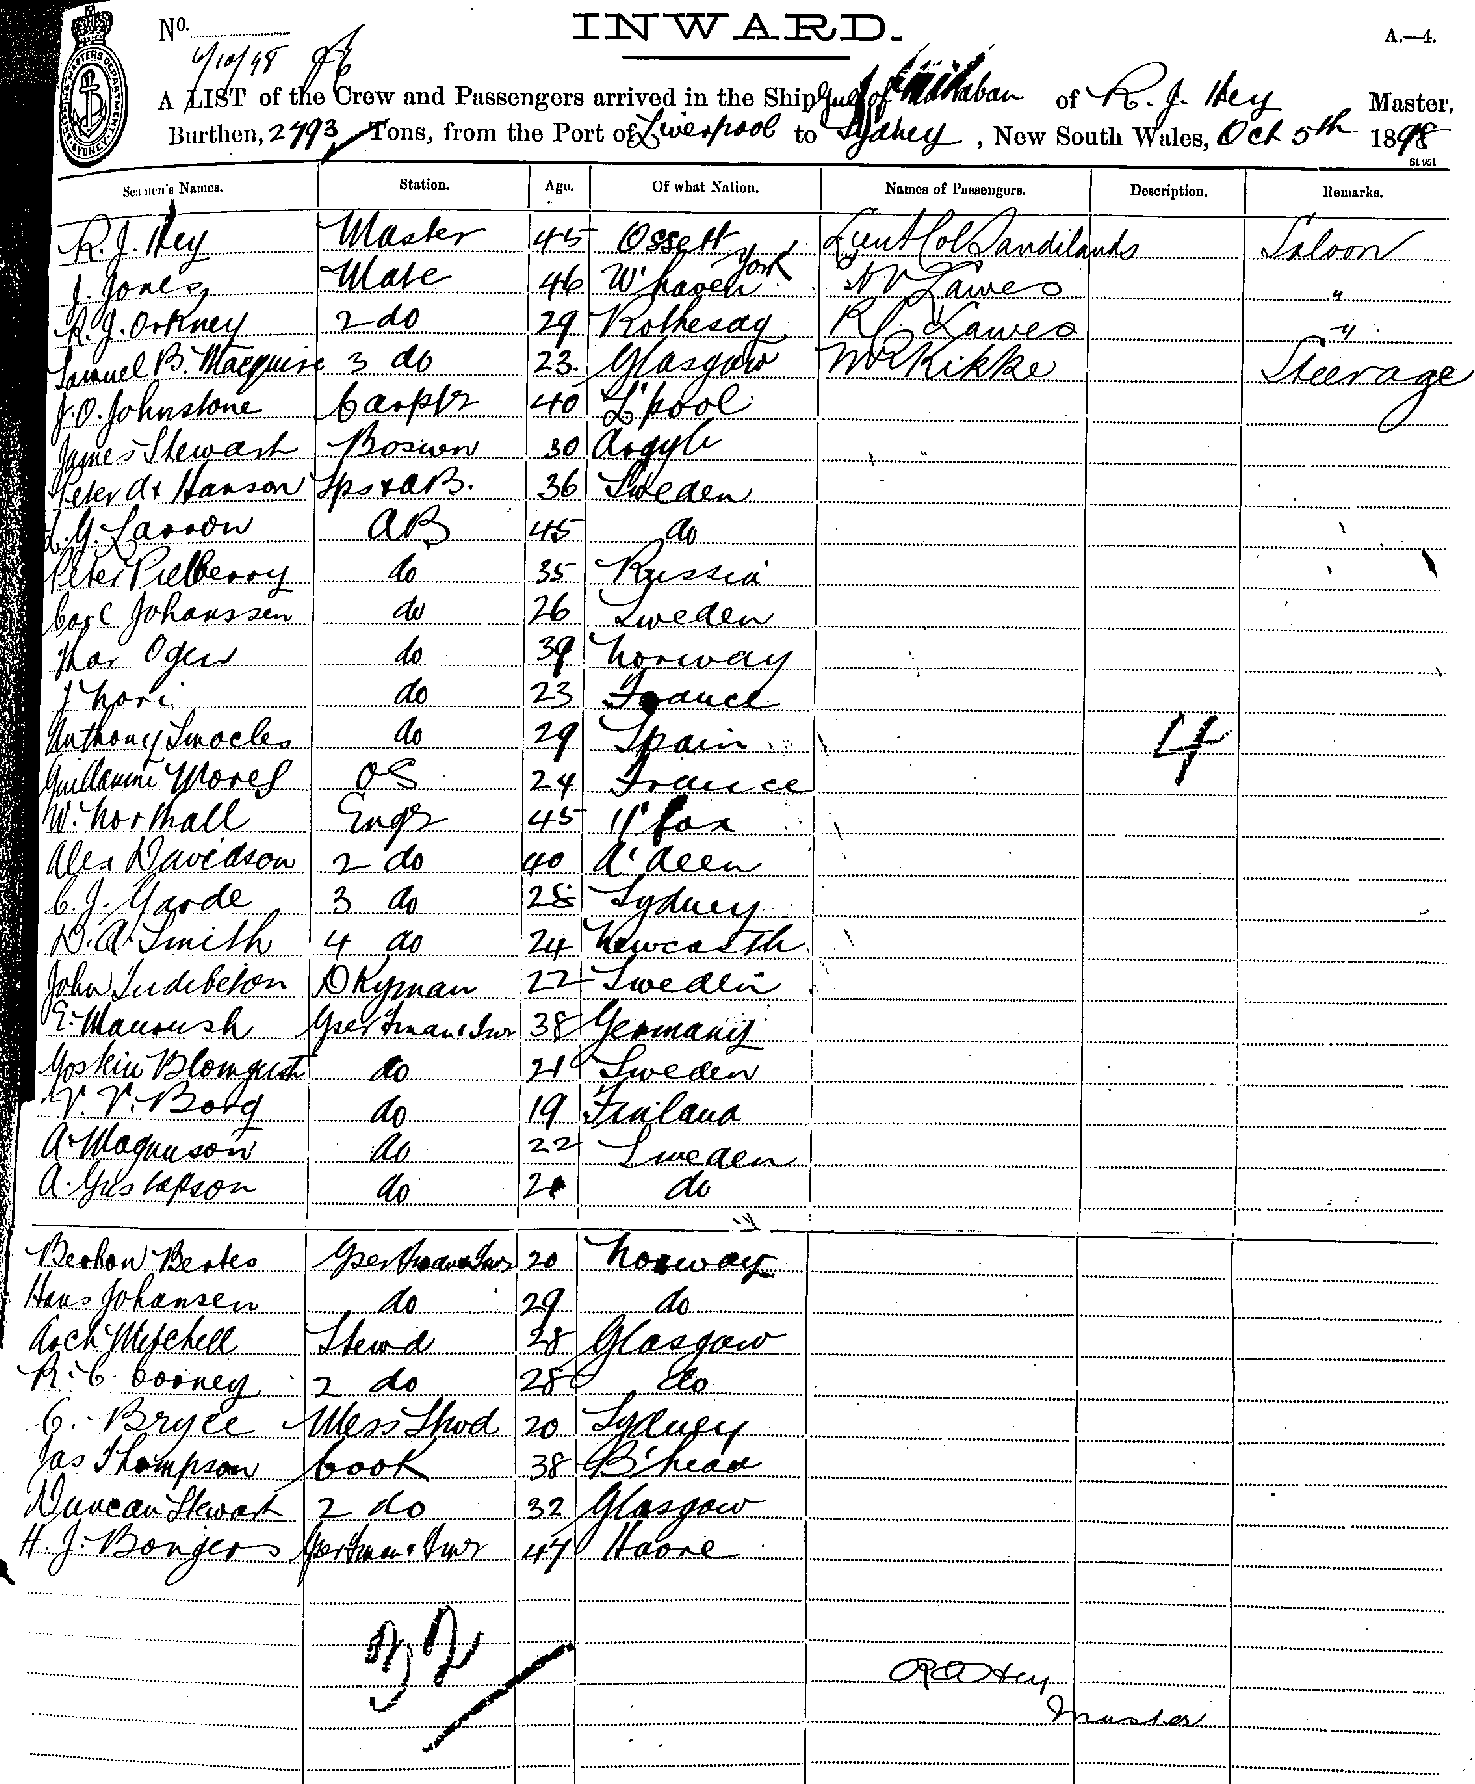 INWARD.
No.
A.—4.
6/10/98
A LIST of the Crew and Passengers arrived in the Ship Gulf of Martaban of R. J. Hey Master,
Burthen, 2793 Tons, from the Port of Liverpool to Sydney, New South Wales, Oct 5th 1898
Seamen's Names. Station. Age. Of what Nation. Names of Passengers. Description. Remarks.
R. J. Hey Master 45 Ossett York Lieut Col Sandilands Saloon
J. Jones Mate 46 W'haven Lawes "
R. J. Orkney 2 do 29 Rothesay Lawes "
Samuel B. Macquire 3 do 23 Glasgow Mr Kikke Steerage
J. O. Johnstone Carptr 40 L'pool
James Stewart Boswn 30 Argyle
Peter A. Hanson Lps & AB. 36 Sweden
L. G. Larson AB 45 do
Peter Pielberry do 35 Russia
Carl Johanssen do 26 Sweden
Thor Ogen do 39 Norway
J Nori do 23 France
Anthony Smocles do 29 Spain
4
Guillaume Morel OS 24 France
W. Northall Engr 45 H'fax
Alex Davidson 2 do 40 A'deen
C. J. Garde 3 do 28 Sydney
D. A. Smith 4 do 24 Newcastle
John Dkyman 22 Sweden
E. Manrush Gser Fman & Tmr 38 Germany
Goskin Blomquist do 21 Sweden
V. V. Borg do 19 Finland
A. Magnuson do 22 Sweden
A. Gustafson do 21 do
Berhon Bertes Gser Fman & Tmr 20 Norway
Hans Johansen do 29 do
Arch Mitchell Stewd 28 Glasgow
R. C. Cooney 2 do 28 do
C. Bryce Mess Stwd 20 Sydney
Jas Thompson Cook 38 B'head
Duncan Stewart 2 do 32 Glasgow
H. J. Bongers Gser Fman & Tmr 47
32
R J Hey
Master